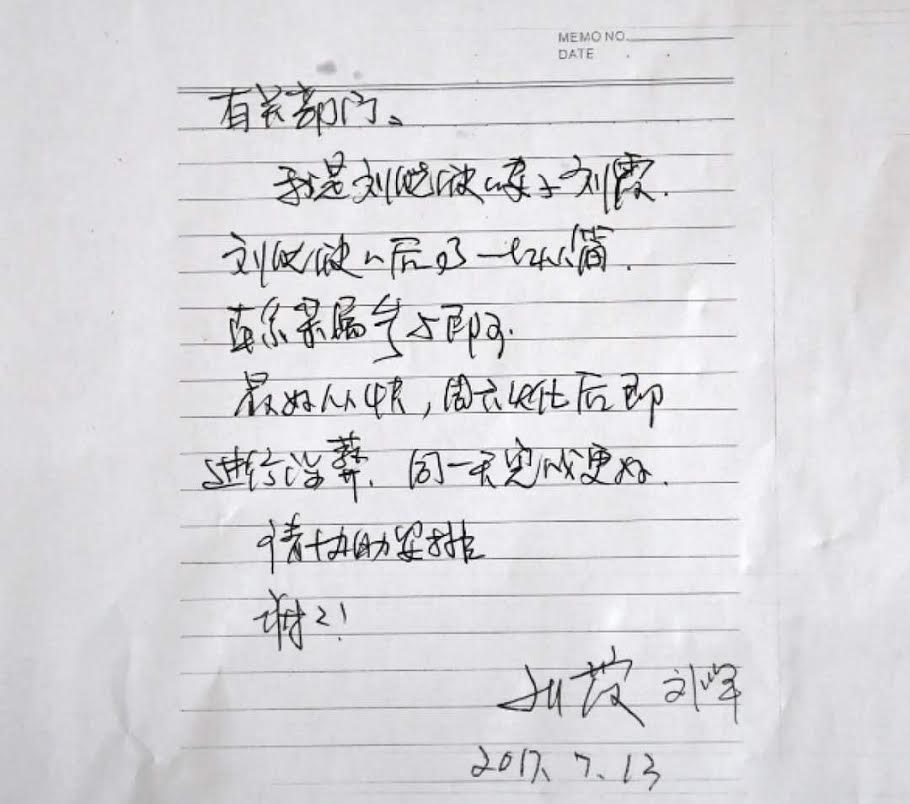 MEMO NO.
DATE
有关部门。
我是刘晓波的妻子刘霞.
刘晓波的后事一切从简.
直系亲属参与即可.
最好从快，周六火化后即
进行海葬. 同一天完成更好.
请协助安排
谢谢！
刘霞 刘晖
2017. 7. 13